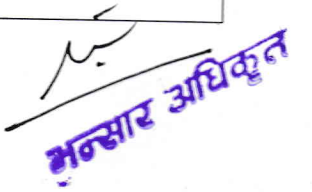 भन्सार अधिकृत